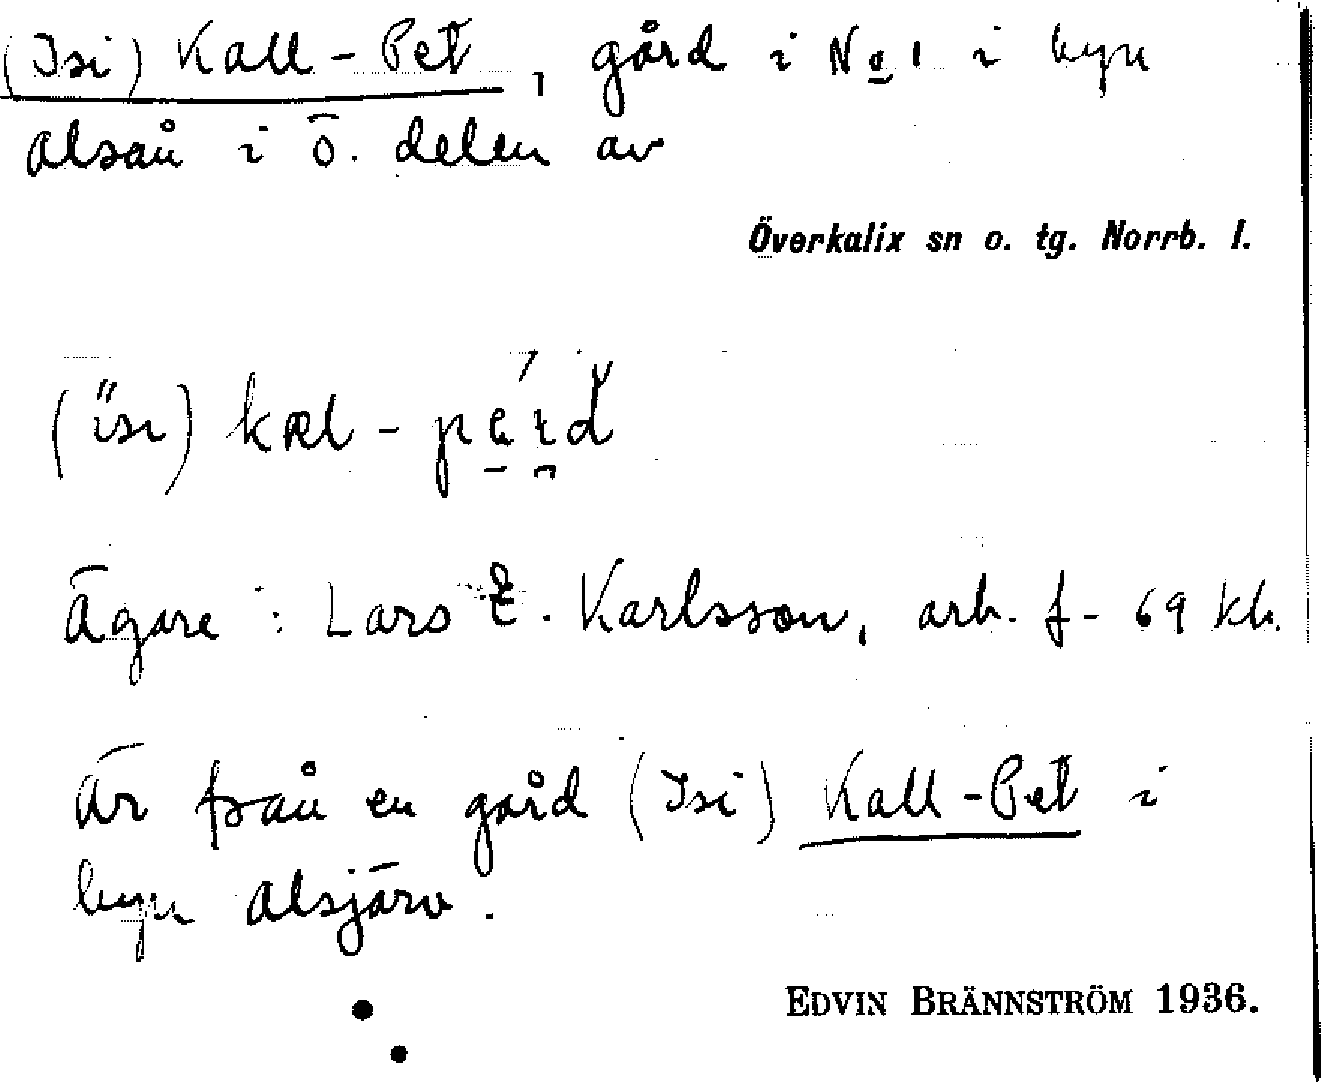 (Isi) Kall-Pet, gård i No 1 i byn
Alsån i Ö. delen av
Överkalix sn o. tg. Norrb. l.
(ïsı) kæl-
Ägare: Lars E. Karlsson, arb. f-69 kb.
Är från en gård (Isi) Kall-Pet i
byn Alsjärv.
EDVIN BRÄNNSTRÖM 1936.